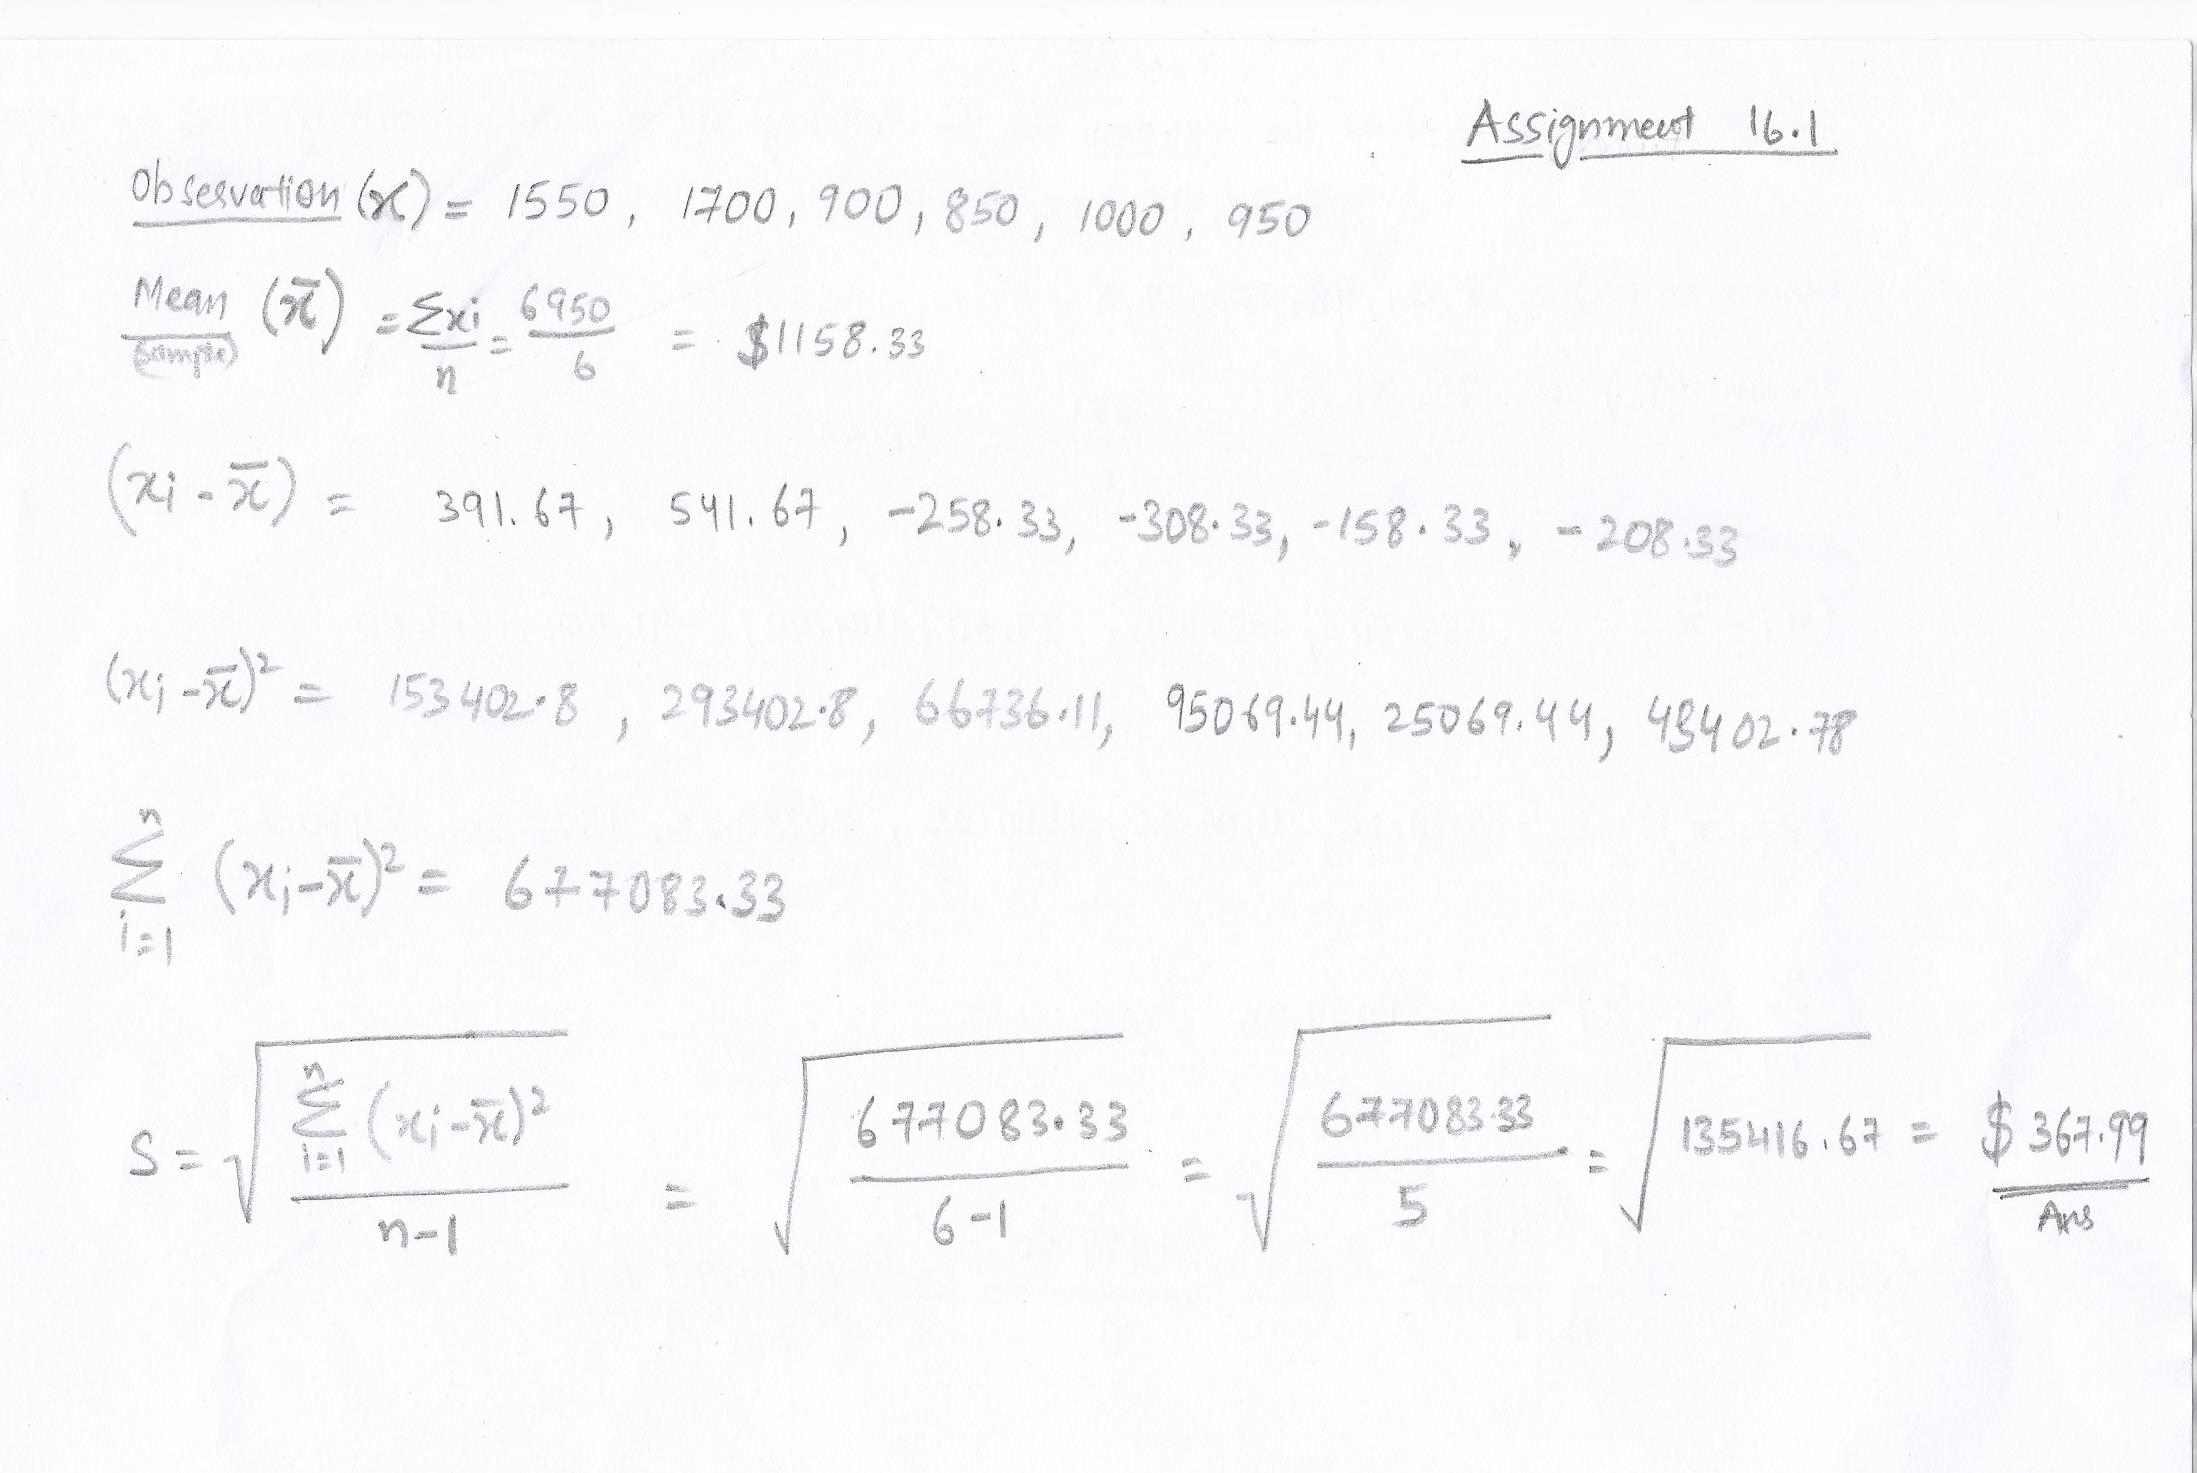 Assignment 16.1
Observation (x) = 1550, 1700, 900, 850, 1000, 950
Mean (sample) (x̄) = Σxi/n = 6950/6 = $1158.33
(xi - x̄) = 391.67, 541.67, -258.33, -308.33, -158.33, -208.33
(xi - x̄)² = 153402.8, 293402.8, 66736.11, 95069.44, 25069.44, 43402.78
n Σ i=1 (xi - x̄)² = 677083.33
S = √(n Σ i=1 (xi - x̄)² / n-1) = √(677083.33 / 6-1) = √(677083.33 / 5) = √135416.67 = $367.99
Ans